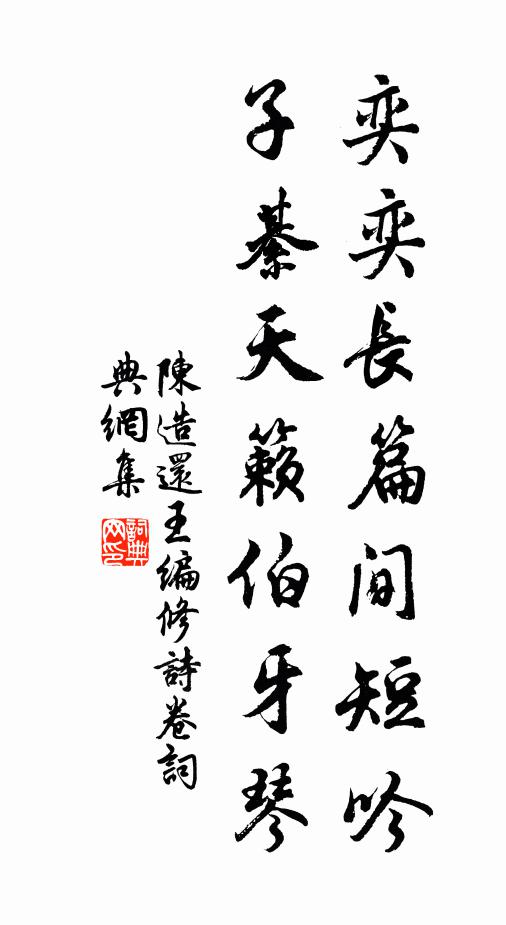 奕奕長篇間短吟
子綦天籟伯牙琴
陳造還王編修詩卷詞
典網集
詞典網印